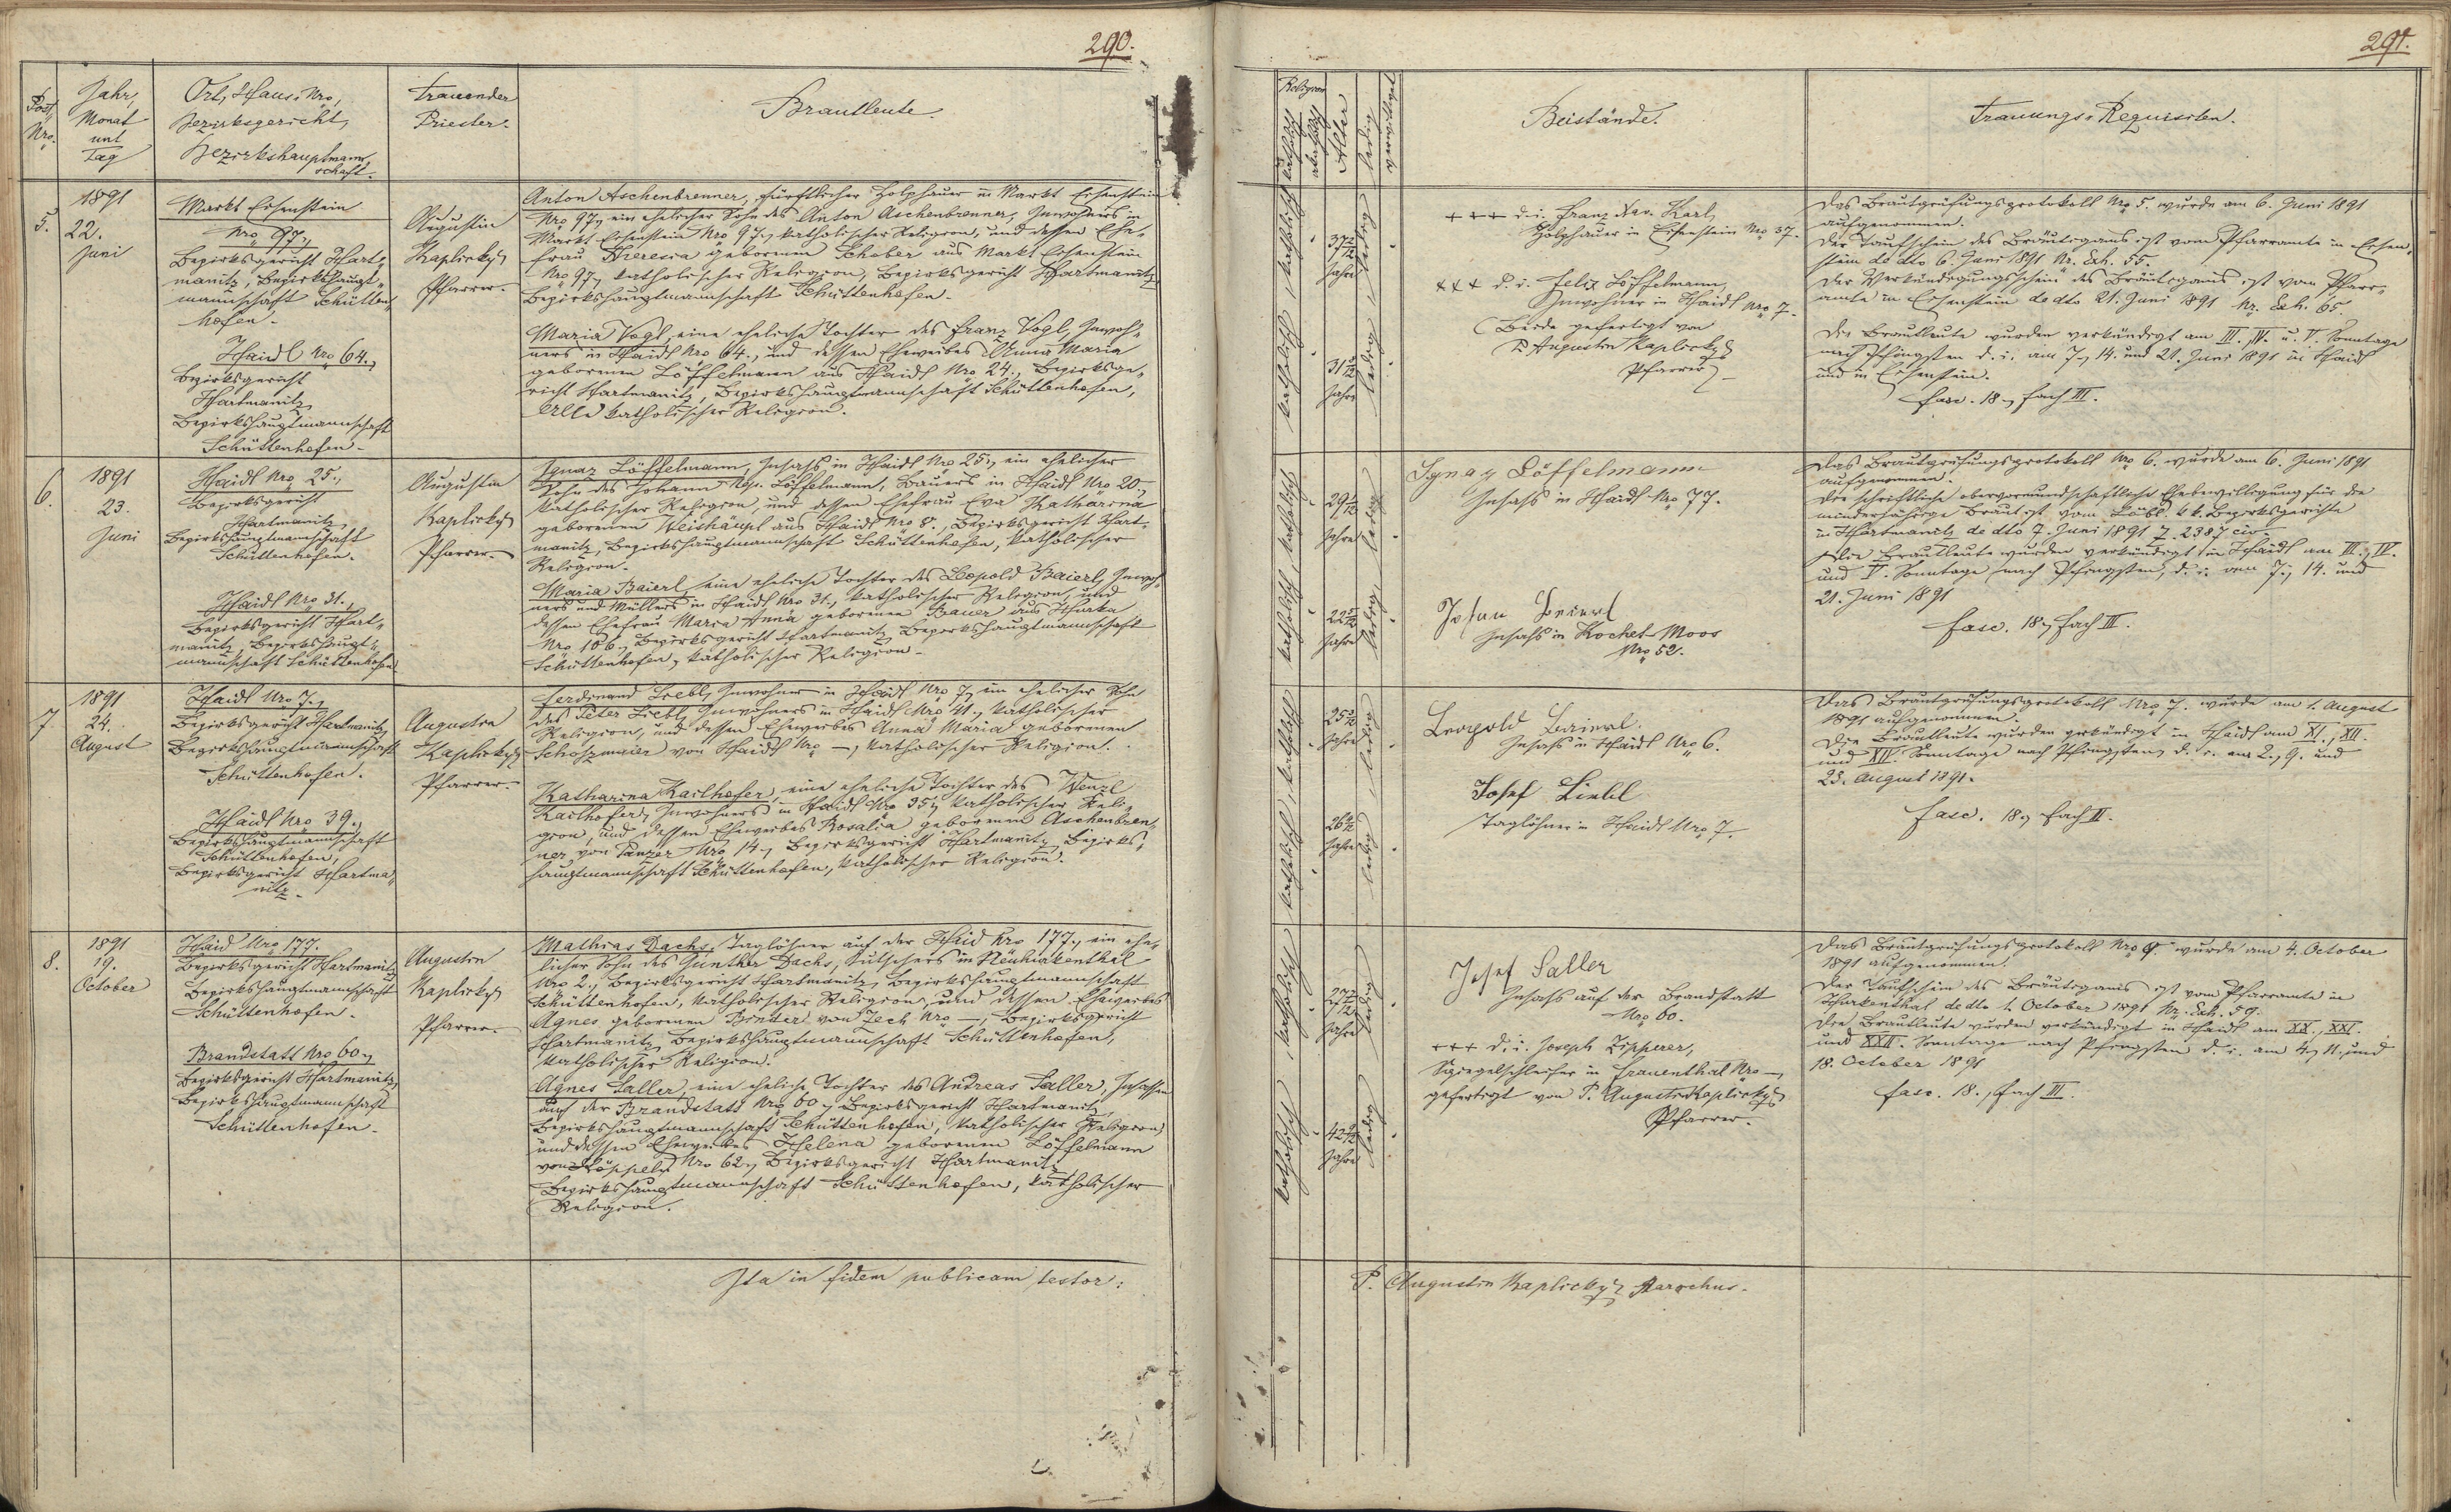 290.
Post Nro.
Jahr, Monat unt Tag
Ort, Haus-Nro, Bezirksgericht, Bezirkshauptmannschaft.
Trauender Priester.
Brautleute.
5.
1891
22.
Juni
Markt Eisenstein
Nro 97.,
Bezirksgericht Hart-
manitz, Bezirkshaupt-
mannschaft Schütten-
hofen.
Haidl Nro 64.,
Bezirksgericht
Hartmanitz,
Bezirkshauptmannschaft
Schüttenhofen.
Augustin
Kaplický,
Pfarrer.
Anton Aschenbrenner, fürstlicher Holzhauer in Markt Eisenstein
Nro 97., ein ehelicher Sohn des Anton Aschenbrenner, Inwohners in
Markt Eisenstein Nro 97., katholischer Religion, und dessen Ehe-
frau Theresia geborenen Schober aus Markt Eisenstein
Nro 97., katholischer Religion, Bezirksgericht Hartmanitz,
Bezirkshauptmannschaft Schüttenhofen.
Maria Vogl, eine eheliche Tochter des Franz Vogl, Inwoh-
ners in Haidl Nro 64., und dessen Eheweibes Anna Maria
geborenen Löffelmann aus Haidl Nro 24., Bezirksge-
richt Hartmanitz, Bezirkshauptmannschaft Schüttenhofen,
Alle katholischer Religion.
6.
1891
23.
Juni
Haidl Nro 25.,
Bezirksgericht
Hartmanitz,
Bezirkshauptmannschaft
Schüttenhofen.
Haidl Nro 31.,
Bezirksgericht Hart-
manitz, Bezirkshaupt-
mannschaft Schüttenhofen.
Augustin
Kaplický,
Pfarrer.
Ignaz Löffelmann, Insass in Haidl Nro 25., ein ehelicher
Sohn des Johann Nep. Löffelmann, Bauers in Haidl Nro 20.,
katholischer Religion, und dessen Ehefrau Eva Katharina
geborenen Weishäupl aus Haidl Nro 8., Bezirksgericht Hart-
manitz, Bezirkshauptmannschaft Schüttenhofen, katholischer
Religion.
Maria Baierl, eine eheliche Tochter des Leopold Baierl, Inwoh-
ners und Müllers in Haidl Nro 31., katholischer Religion, und
dessen Ehefrau Maria Anna geborenen Bauer aus Hurka
Nro 106., Bezirksgericht Hartmanitz, Bezirkshauptmannschaft
Schüttenhofen, katholischer Religion.
7.
1891
24.
August
Haidl Nro 7.,
Bezirksgericht Hartmanitz,
Bezirkshauptmannschaft
Schüttenhofen.
Haidl Nro 39.,
Bezirkshauptmannschaft
Schüttenhofen,
Bezirksgericht Hartma-
nitz.
Augustin
Kaplický,
Pfarrer.
Ferdinand Liebl, Inwohner in Haidl Nro 7., ein ehelicher Sohn
des Peter Liebl, Inwohners in Haidl Nro 41., katholischer
Religion, und dessen Eheweibes Anna Maria geborenen
von Haidl Nro —, katholischer Religion.
Katharina Kailhofer, eine eheliche Tochter des Wenzl
Kailhofer, Inwohners in Haidl Nro 35., katholischer Reli-
gion, und dessen Eheweibes Rosalia geborenen Aschenbren-
ner von Panzer Nro 14., Bezirksgericht Hartmanitz, Bezirks-
hauptmannschaft Schüttenhofen, katholischer Religion.
8.
1891
19.
October
Haid Nro 177.
Bezirksgericht Hartmanitz
Bezirkshauptmannschaft
Schüttenhofen.
Brandstatt Nro 60.,
Bezirksgericht Hartmanitz,
Bezirkshauptmannschaft
Schüttenhofen.
Augustin
Kaplický,
Pfarrer.
Mathias Dachs, Taglöhner auf der Haid Nro 177., ein ehe-
licher Sohn des Günther Dachs, Kutschers in Neuhurkenthal
Nro 2., Bezirksgericht Hartmanitz, Bezirkshauptmannschaft
Schüttenhofen, katholischer Religion, und dessen Eheweibes
Agnes geborenen Binder von Zech Nro —, Bezirksgericht
Hartmanitz, Bezirkshauptmannschaft Schüttenhofen,
katholischer Religion.
Agnes Saller, eine eheliche Tochter des Andreas Saller, Insassen
auf der Brandstatt Nro 60., Bezirksgericht Hartmanitz,
Bezirkshauptmannschaft Schüttenhofen, katholischer Religion,
und dessen Eheweibes Helena geborenen Löffelmann
von Köppeln Nro 62., Bezirksgericht Hartmanitz,
Bezirkshauptmannschaft Schüttenhofen, katholischer
Religion.
Ita in fidem publicam testor:
291.
Religion
katholisch
Alter
ledig
verwittwet
Beistände.
Trauungs-Requisiten.
katholisch, katholisch
37 Jahre
ledig
31 Jahre
ledig
+++ d. i. Franz Xav. Karl,
Holzhauer in Eisenstein Nro 37.
+++ d. i. Felix Löffelmann,
Inwohner in Haidl Nro 7.
(Beide gefertigt von
P. Augustin Kaplický,
Pfarrer)
Das Brautprüfungsprotokoll Nro 5. wurde am 6. Juni 1891
aufgenommen.
Der Taufschein des Bräutigams ist vom Pfarramte in Eisen-
stein de dto 6. Juni 1891 Nr. Exh. 55.
Der Verkündigungsschein des Bräutigams ist vom Pfarr-
amte in Eisenstein de dto 21. Juni 1891 Nr. Exh. 65.
Die Brautleute wurden verkündigt am III., IV. u. V. Sonntage
nach Pfingsten d. i. am 7., 14. und 21. Juni 1891 in Haidl
und in Eisenstein.
Fasc. 18., Fach III.
katholisch, katholisch
29 Jahre
ledig
22 Jahre
ledig
Ignaz Löffelmann
Insass in Haidl Nro 77.
Johan Beierl
Insass in Kochet-Moos
Nro 52.
Das Brautprüfungsprotokoll Nro 6. wurde am 6. Juni 1891
aufgenommen.
Die schriftliche obervormundschaftliche Ehebewilligung für die
minderjährige Braut ist vom Löbl. k. k. Bezirksgerichte
in Hartmanitz de dto 7. Juni 1891 Z. 2387 civ.
Die Brautleute wurden verkündigt in Haidl am III., IV.
und V. Sonntage nach Pfingsten, d. i. am 7., 14. und
21. Juni 1891
Fasc. 18., Fach III.
katholisch, katholisch
25 Jahre
ledig
26 Jahre
ledig
Leopold Baierl.
Insass in Haidl Nro 6.
Josef Liebl
Taglöhner in Haidl Nro 7.
Das Brautprüfungsprotokoll Nro 7. wurde am 1. August
1891 aufgenommen.
Die Brautleute wurden verkündigt in Haidl am XI., XII.
und XIV. Sonntage nach Pfingsten, d. i. am 2., 9. und
23. August 1891.
Fasc. 18., Fach III.
katholisch, katholisch
27 Jahre
ledig
42 Jahre
ledig
Josef Saller
Insass auf der Brandstatt
Nro 60.
+++ d. i. Joseph Zipperer,
Spiegelschleifer in Frauenthal Nro —,
gefertigt von P. Augustin Kaplický,
Pfarrer.
Das Brautprüfungsprotokoll Nro 9. wurde am 4. October
1891 aufgenommen.
Der Taufschein des Bräutigams ist vom Pfarramte in
Hurkenthal de dto 1. October 1891 Nr. Exh. 59.
Die Brautleute wurden verkündigt in Haidl am XX., XXI.
und XXII. Sonntage nach Pfingsten d. i. am 4., 11. und
18. October 1891
Fasc. 18., Fach III.
P. Augustin Kaplický, Parochus.